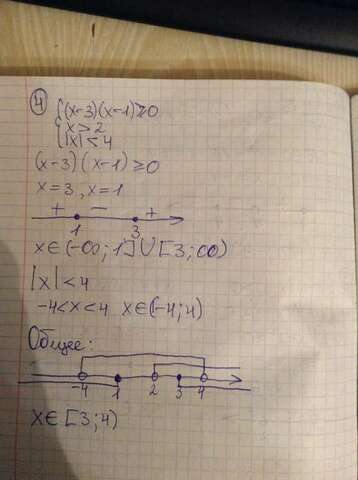 ④ {(x-3)(x-1)≥0
x>2
|x|<4
(x-3)(x-1)≥0
x=3, x=1
+ - +
1 3
x∈(-∞;1]∪[3;∞)
|x|<4
-4<x<4 x∈(-4;4)
Общее:
-4 1 2 3 4
x∈[3;4)